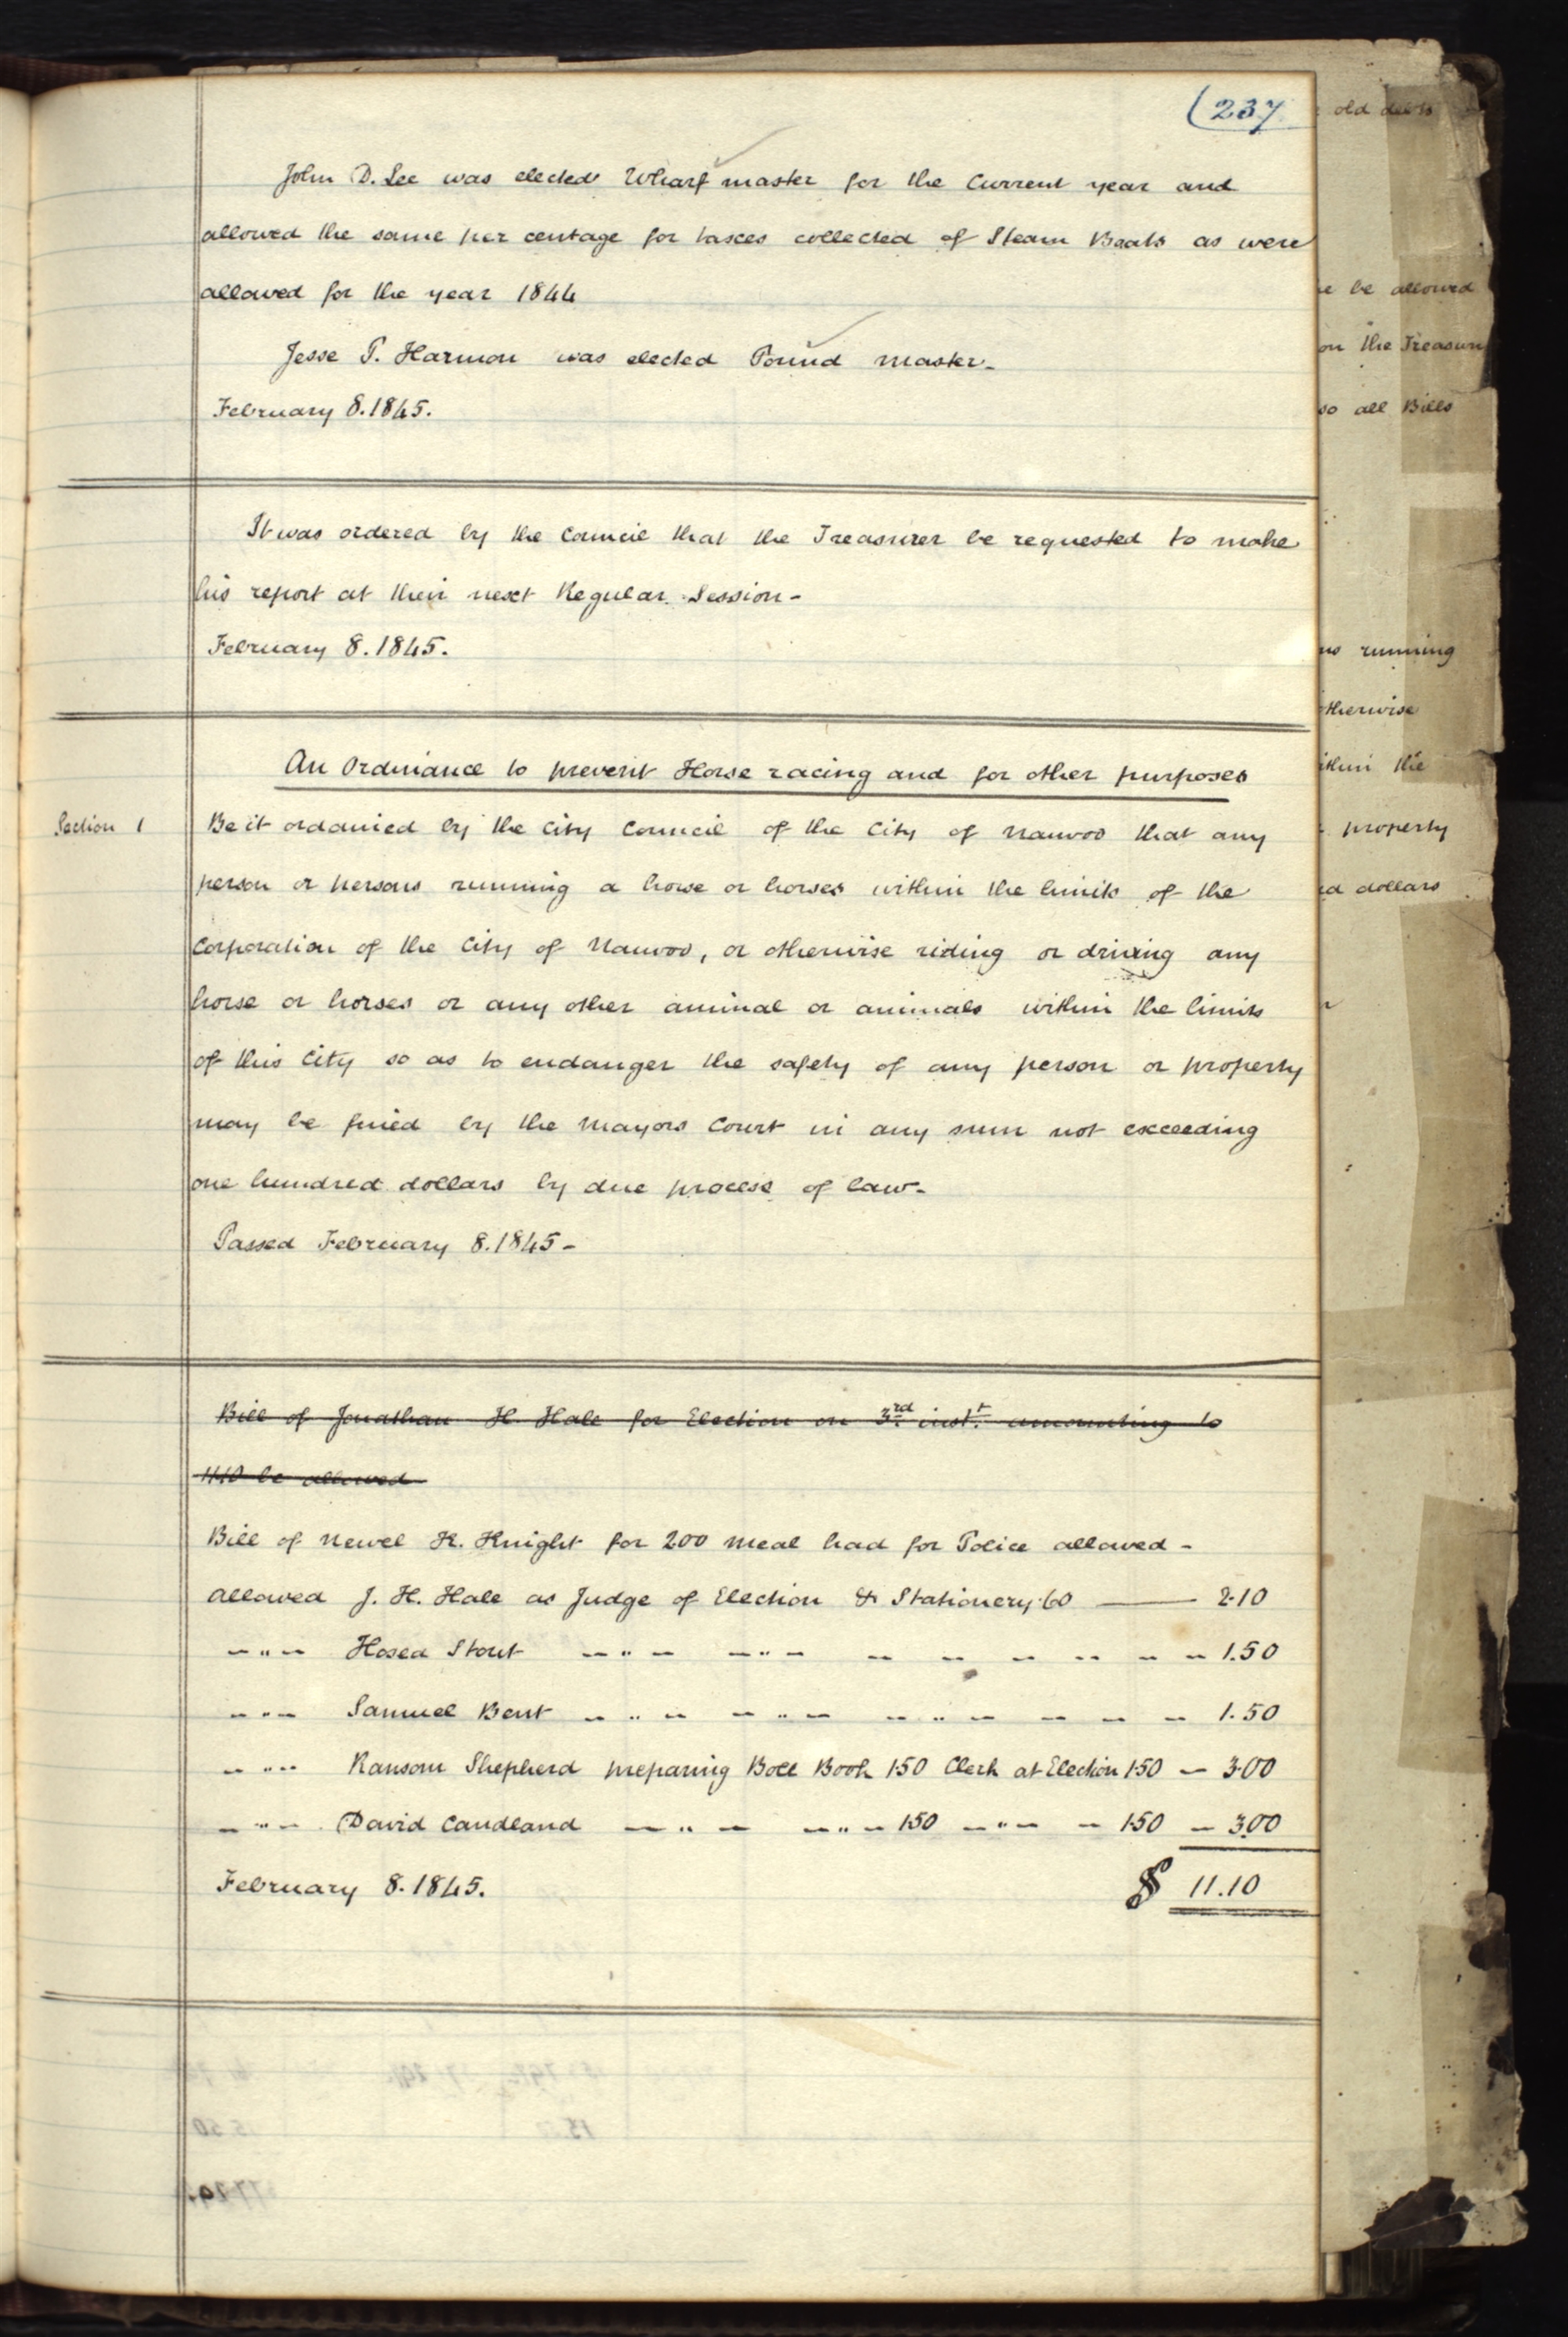 (237
John D. Lee was elected Wharf master for the Current year and
allowed the same per centage for tasces collected of Steam Boats as were
allowed for the year 1844
Jesse P. Harmon was elected Pound master-
February 8.1845.
It was ordered by the Council that the Treasurer be requested to make
his report at their next Regular Session-
February 8.1845.
An Ordinance to prevent Horse racing and for other purposes
Section 1 Be it ordained by the City Council of the City of Nauvoo that any
person or persons running a horse or horses within the limits of the
Corporation of the City of Nauvoo, or otherwise riding or driving any
horse or horses or any other animal or animals within the limits
of this City so as to endanger the safety of any person or property
may be fined by the Mayors Court in any sum not exceeding
one hundred dollars by due process of law-
Passed February 8.1845-
Bill of Jonathan H. Hale for Election on 3rd inst. amounting to
11.10 be allowed
Bill of Newel K. Knight for 200 meal had for Police allowed-
Allowed J. H. Hale as Judge of Election & Stationery.60 — 2.10
-"- Hosea Stout -"- -"- - - - - - - 1.50
-"- Samuel Bent -"- -"- -"- - - - 1.50
-"- Ransom Shepherd preparing Boll Book 1.50 Clerk at Election 1.50 - 3.00
-"- David Candland -"- -"- 1.50 -"- - 1.50 - 3.00
February 8.1845. $ 11.10
old debts
be allowed
on the Treasury
so all Bills
running
otherwise
within the
property
dollars